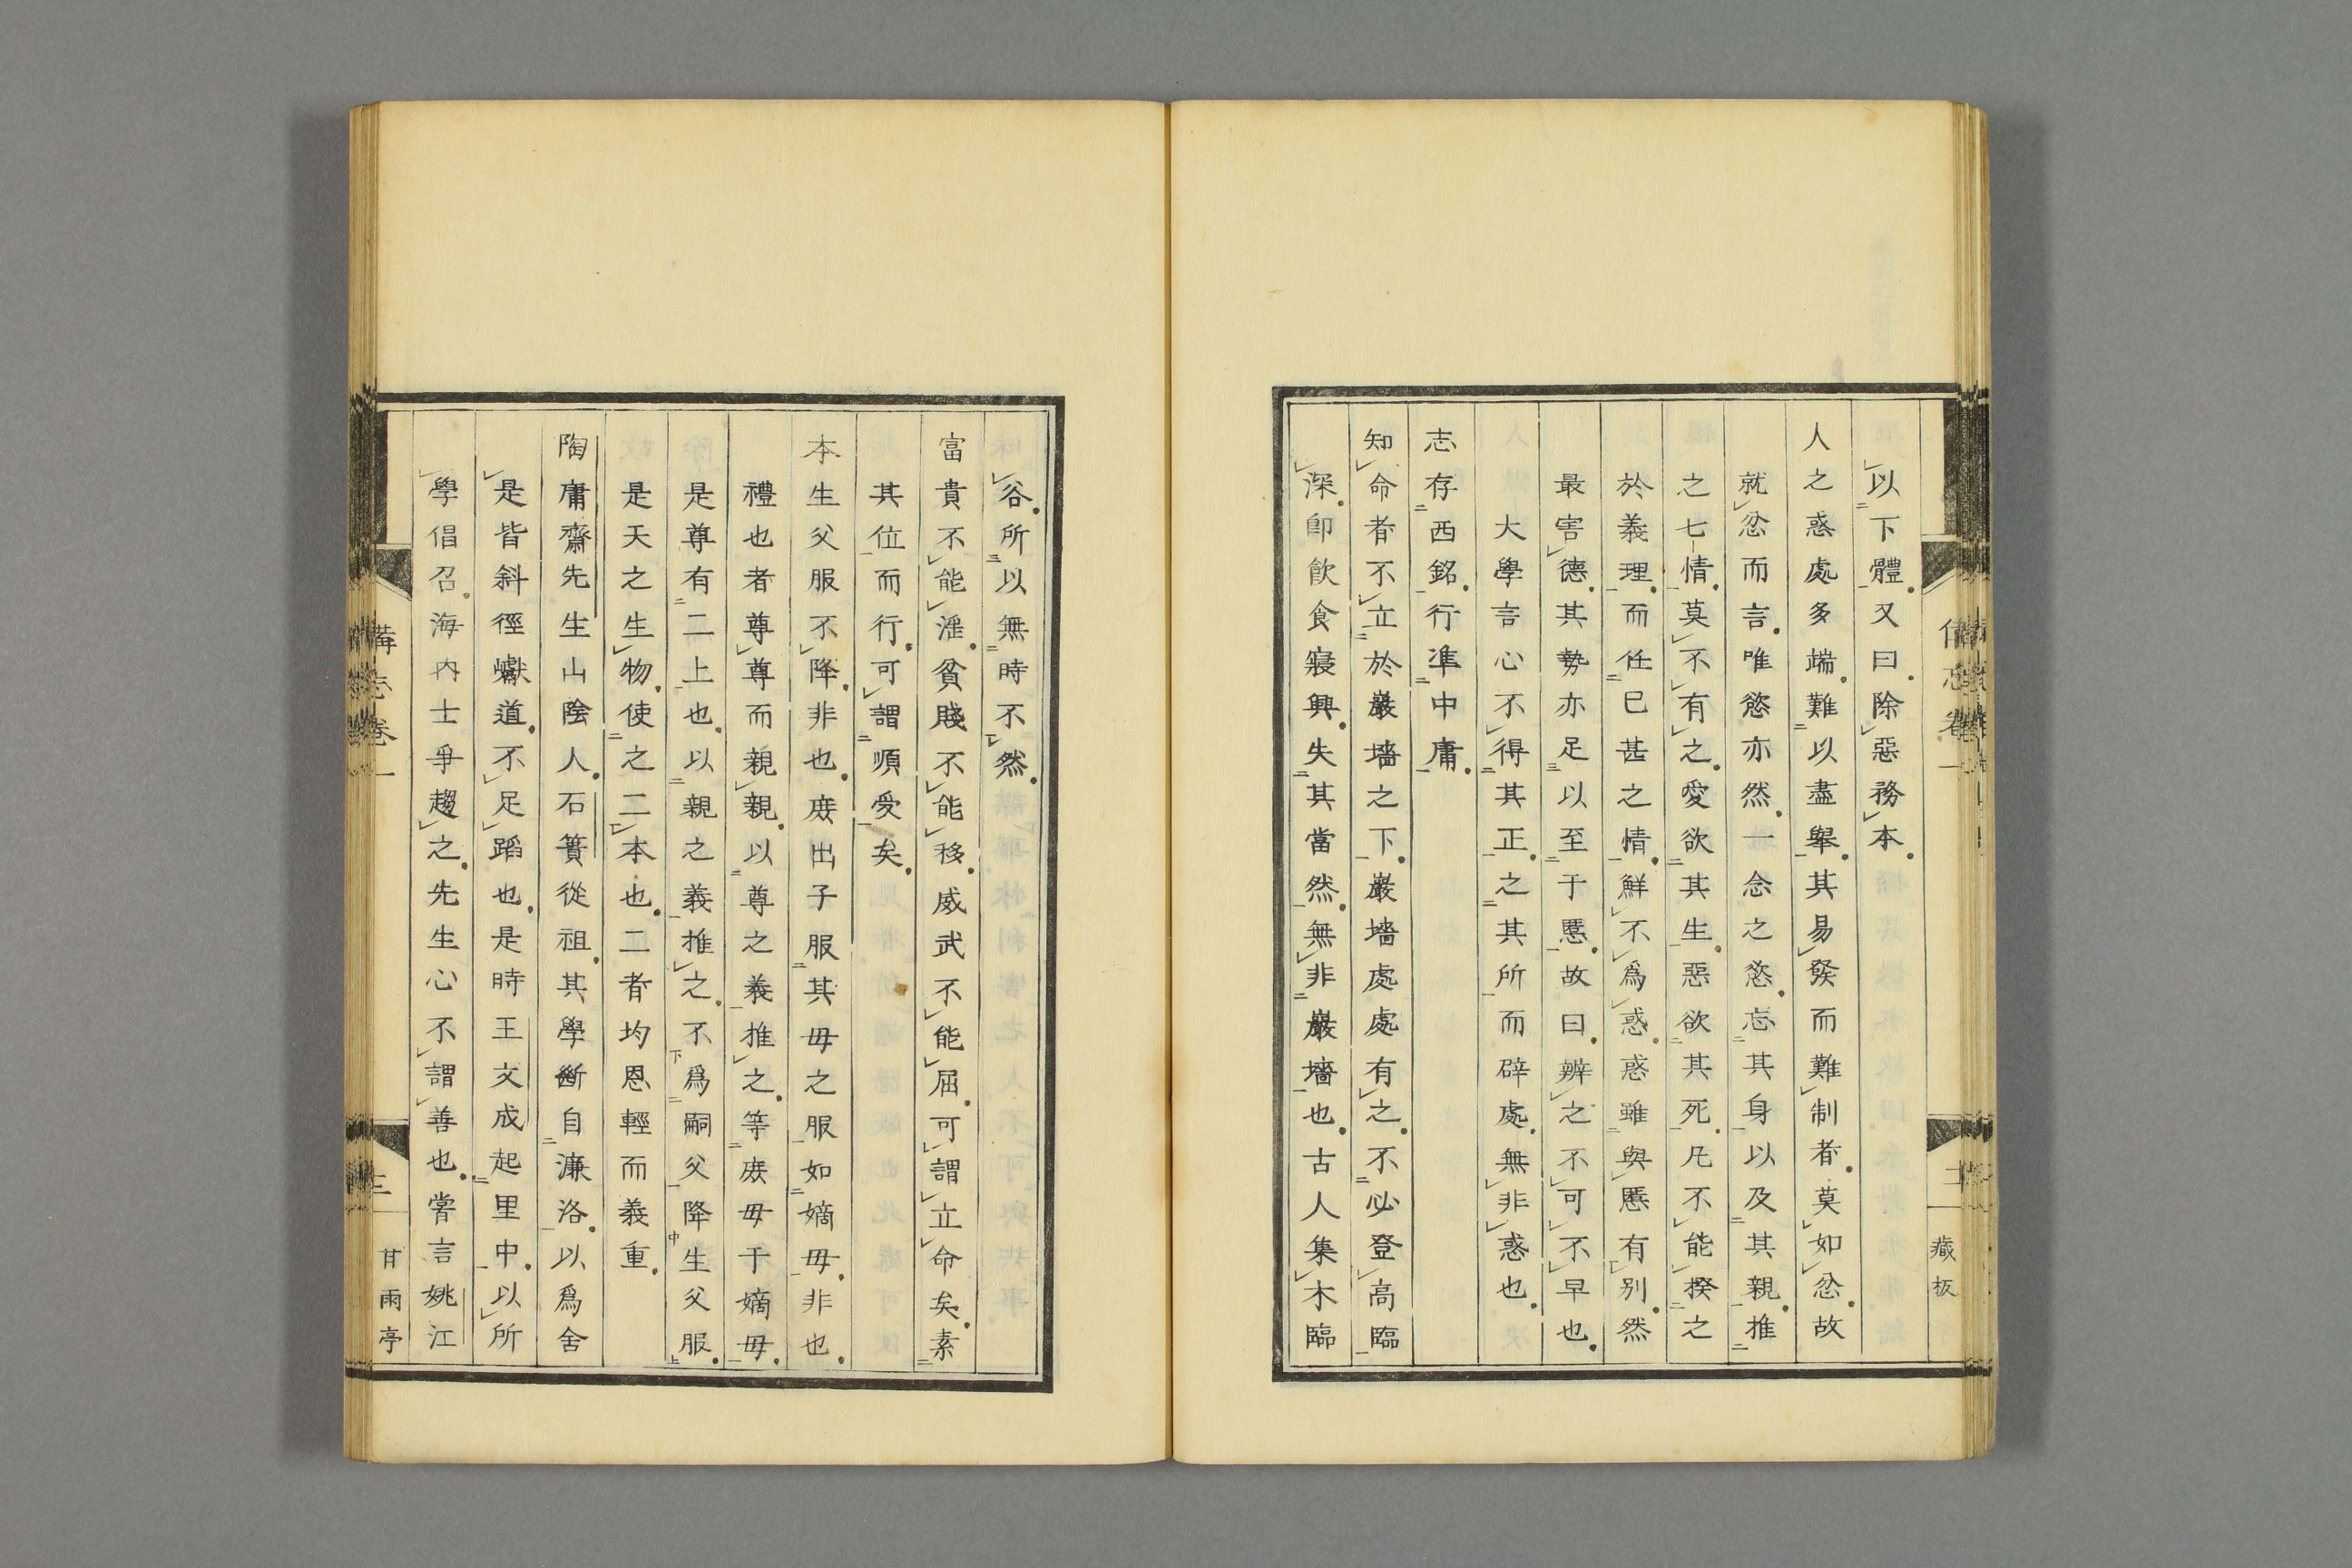 以下體又曰除惡務本
人之惑處多端難以盡舉其易發而難制者莫如忿故
就忿而言唯慾亦然一念之慾忘其身以及其親推
之七情莫不有之愛欲其生惡欲其死凡不能揆之
於義理而任已甚之情鮮不爲惑惑雖與慝有别然
最害德其勢亦足以至于慝故曰辨之不可不早也
大學言心不得其正之其所而辟處無非惑也
志存西銘行準中庸
知命者不立於巖墻之下巖墻處處有之不必登高臨
深卽飲食寢興失其當然無非巖墻也古人集木臨
藏板
谷所以無時不然
富貴不能淫貧賤不能移威武不能屈可謂立命矣素
其位而行可謂順受矣
本生父服不降非也庶出子服其毋之服如嫡毋非也
禮也者尊尊而親親以尊之義推之等庶毋于嫡毋
是尊有二上也以親之義推之不爲嗣父降生父服
是天之生物使之二本也二者均恩輕而義重
陶庸齋先生山陰人石簣從祖其學斷自濂洛以爲舍
是皆斜徑巇道不足蹈也是時王文成起里中以所
學倡召海内士爭趨之先生心不謂善也嘗言姚江
備忘卷一
三
甘雨亭